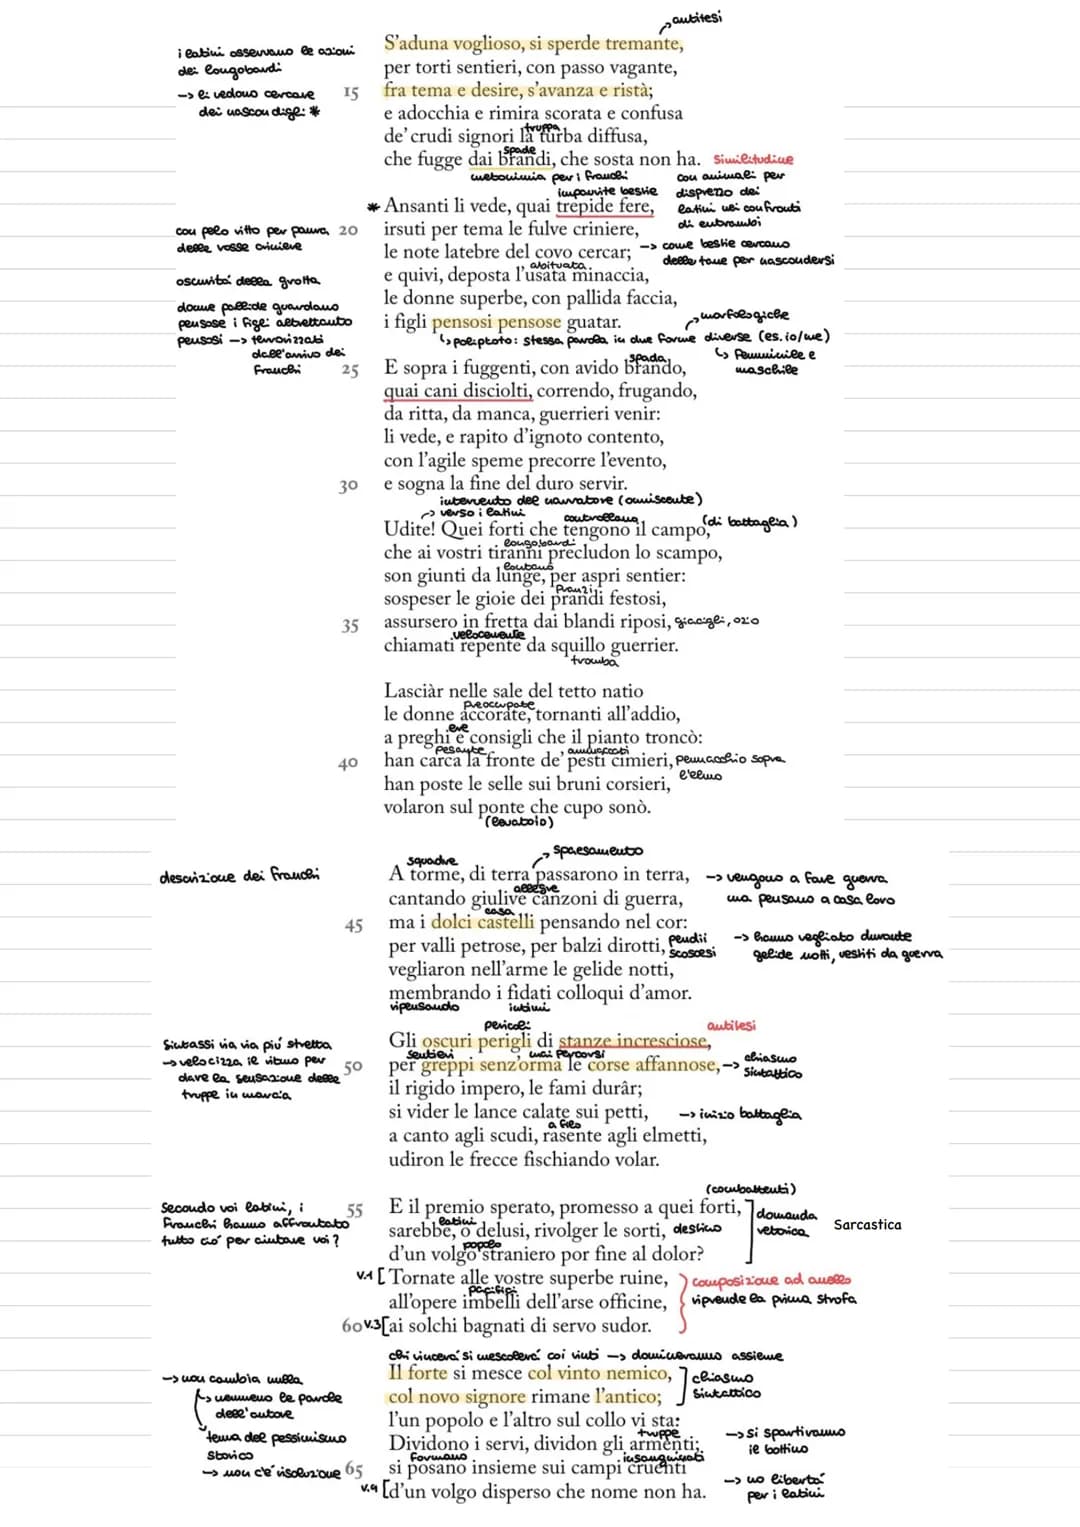 antitesi
S'aduna voglioso, si sperde tremante,
i latini osservano le azioni
dei longobardi
per torti sentieri, con passo vagante,
-> li vedono cercare
dei nascondigli *
15 fra tema e desire, s'avanza e ristà;
e adocchia e rimira scorata e confusa
truppa
de' crudi signori la turba diffusa,
spade
che fugge dai brandi, che sosta non ha. similitudine
metonimia per i franchi
con animali per
disprezzo dei
latini nei confronti
di entrambi
impaurite bestie
* Ansanti li vede, quai trepide fere,
con pelo ritto per paura,
delle rosse criniere
20 irsuti per tema le fulve criniere,
le note latebre del covo cercar; -> come bestie cercano
delle tane per nascondersi
oscurità della grotta
abituata
e quivi, deposta l'usata minaccia,
le donne superbe, con pallida faccia,
donne pallide guardano
pensose i figli altrettanto
pensosi -> terrorizzati
dall'arrivo dei
Franchi
i figli pensosi pensose guatar.
morfologiche
poliptoto: stessa parola in due forme diverse (es. io/me)
femminile e
maschile
spada
25 E sopra i fuggenti, con avido brando,
quai cani disciolti, correndo, frugando,
da ritta, da manca, guerrieri venir:
li vede, e rapito d'ignoto contento,
con l'agile speme precorre l'evento,
30 e sogna la fine del duro servir.
intervento del narratore (onnisciente)
verso i latini
controllano
(di battaglia)
Udite! Quei forti che tengono il campo,
longobardi
che ai vostri tiranni precludon lo scampo,
lontano
son giunti da lunge, per aspri sentier:
Pranzi
sospeser le gioie dei prandi festosi,
35 assursero in fretta dai blandi riposi, giacigli, ozio
velocemente
chiamati repente da squillo guerrier.
tromba
Lasciàr nelle sale del tetto natio
preoccupate
le donne accorate, tornanti all'addio,
a preghi e consigli che il pianto troncò:
pesante
ammaccati
40 han carca la fronte de' pesti cimieri, pennacchio sopra
l'elmo
han poste le selle sui bruni corsieri,
volaron sul ponte che cupo sonò.
(levatoio)
squadre
spaesamento
descrizione dei franchi
A torme, di terra passarono in terra, -> vengono a fare guerra
ma pensano a casa loro
allegre
cantando giulive canzoni di guerra,
casa
45 ma i dolci castelli pensando nel cor:
per valli petrose, per balzi dirotti, pendii
scoscesi
-> hanno vegliato durante
gelide notti, vestiti da guerra
vegliaron nell'arme le gelide notti,
membrando i fidati colloqui d'amor.
ripensando intimi
pericoli
antitesi
Gli oscuri perigli di stanze incresciose,
Sintassi via via più stretta
-> velocizza il ritmo per
dare la sensazione delle
truppe in marcia
sentieri mai percorsi
50 per greppi senz'orma le corse affannose, -> chiasmo
sintattico
il rigido impero, le fami durâr;
si vider le lance calate sui petti, -> inizio battaglia
a filo
a canto agli scudi, rasente agli elmetti,
udiron le frecce fischiando volar.
(combattenti)
Secondo voi latini, i
Franchi hanno affrontato
tutto ciò per aiutare voi?
55 E il premio sperato, promesso a quei forti,
domanda
retorica
Sarcastica
latini
sarebbe, o delusi, rivolger le sorti, destino
popolo
d'un volgo straniero por fine al dolor?
v.1 [Tornate alle vostre superbe ruine,
composizione ad anello
riprende la prima strofa
pacifici
all'opere imbelli dell'arse officine,
60 v.3 [ai solchi bagnati di servo sudor.
chi vincerà si mescolerà coi vinti -> domineranno assieme
Il forte si mesce col vinto nemico,
chiasmo
sintattico
-> non cambia nulla
nemmeno le parole
dell'autore
col novo signore rimane l'antico;
l'un popolo e l'altro sul collo vi sta:
tema del pessimismo
storico
truppe
Dividono i servi, dividon gli armenti; -> si spartiranno
il bottino
-> non c'è risoluzione
Formano insanguinati
65 si posano insieme sui campi cruenti
-> no libertà
per i latini
v.4 [d'un volgo disperso che nome non ha.